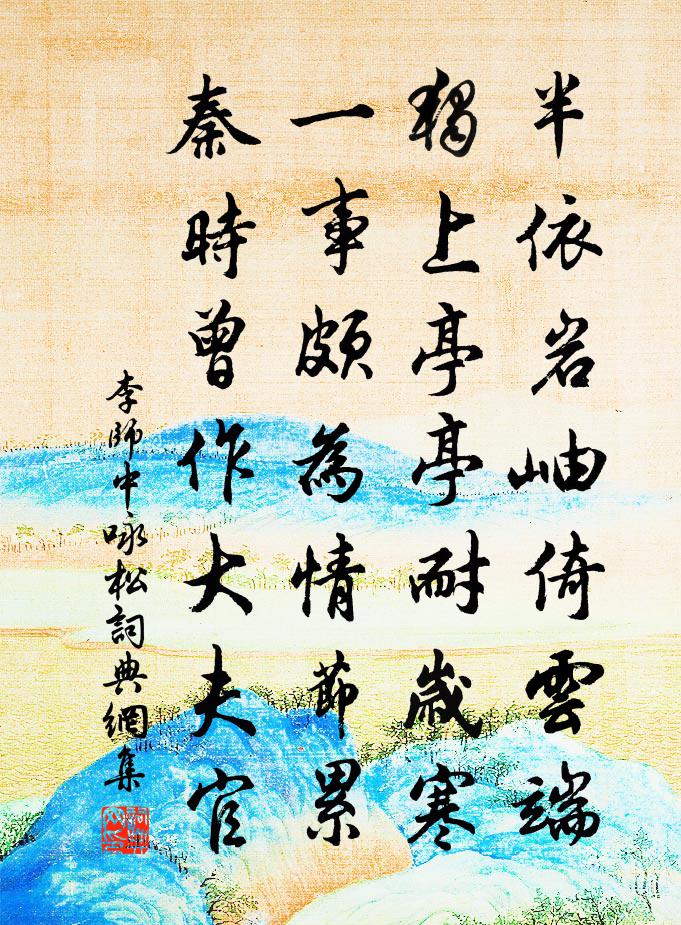 半依岩岫倚雲端
獨上亭亭耐歲寒
一事頗為情節累
秦時曾作大夫官
李師中咏松詞典網集